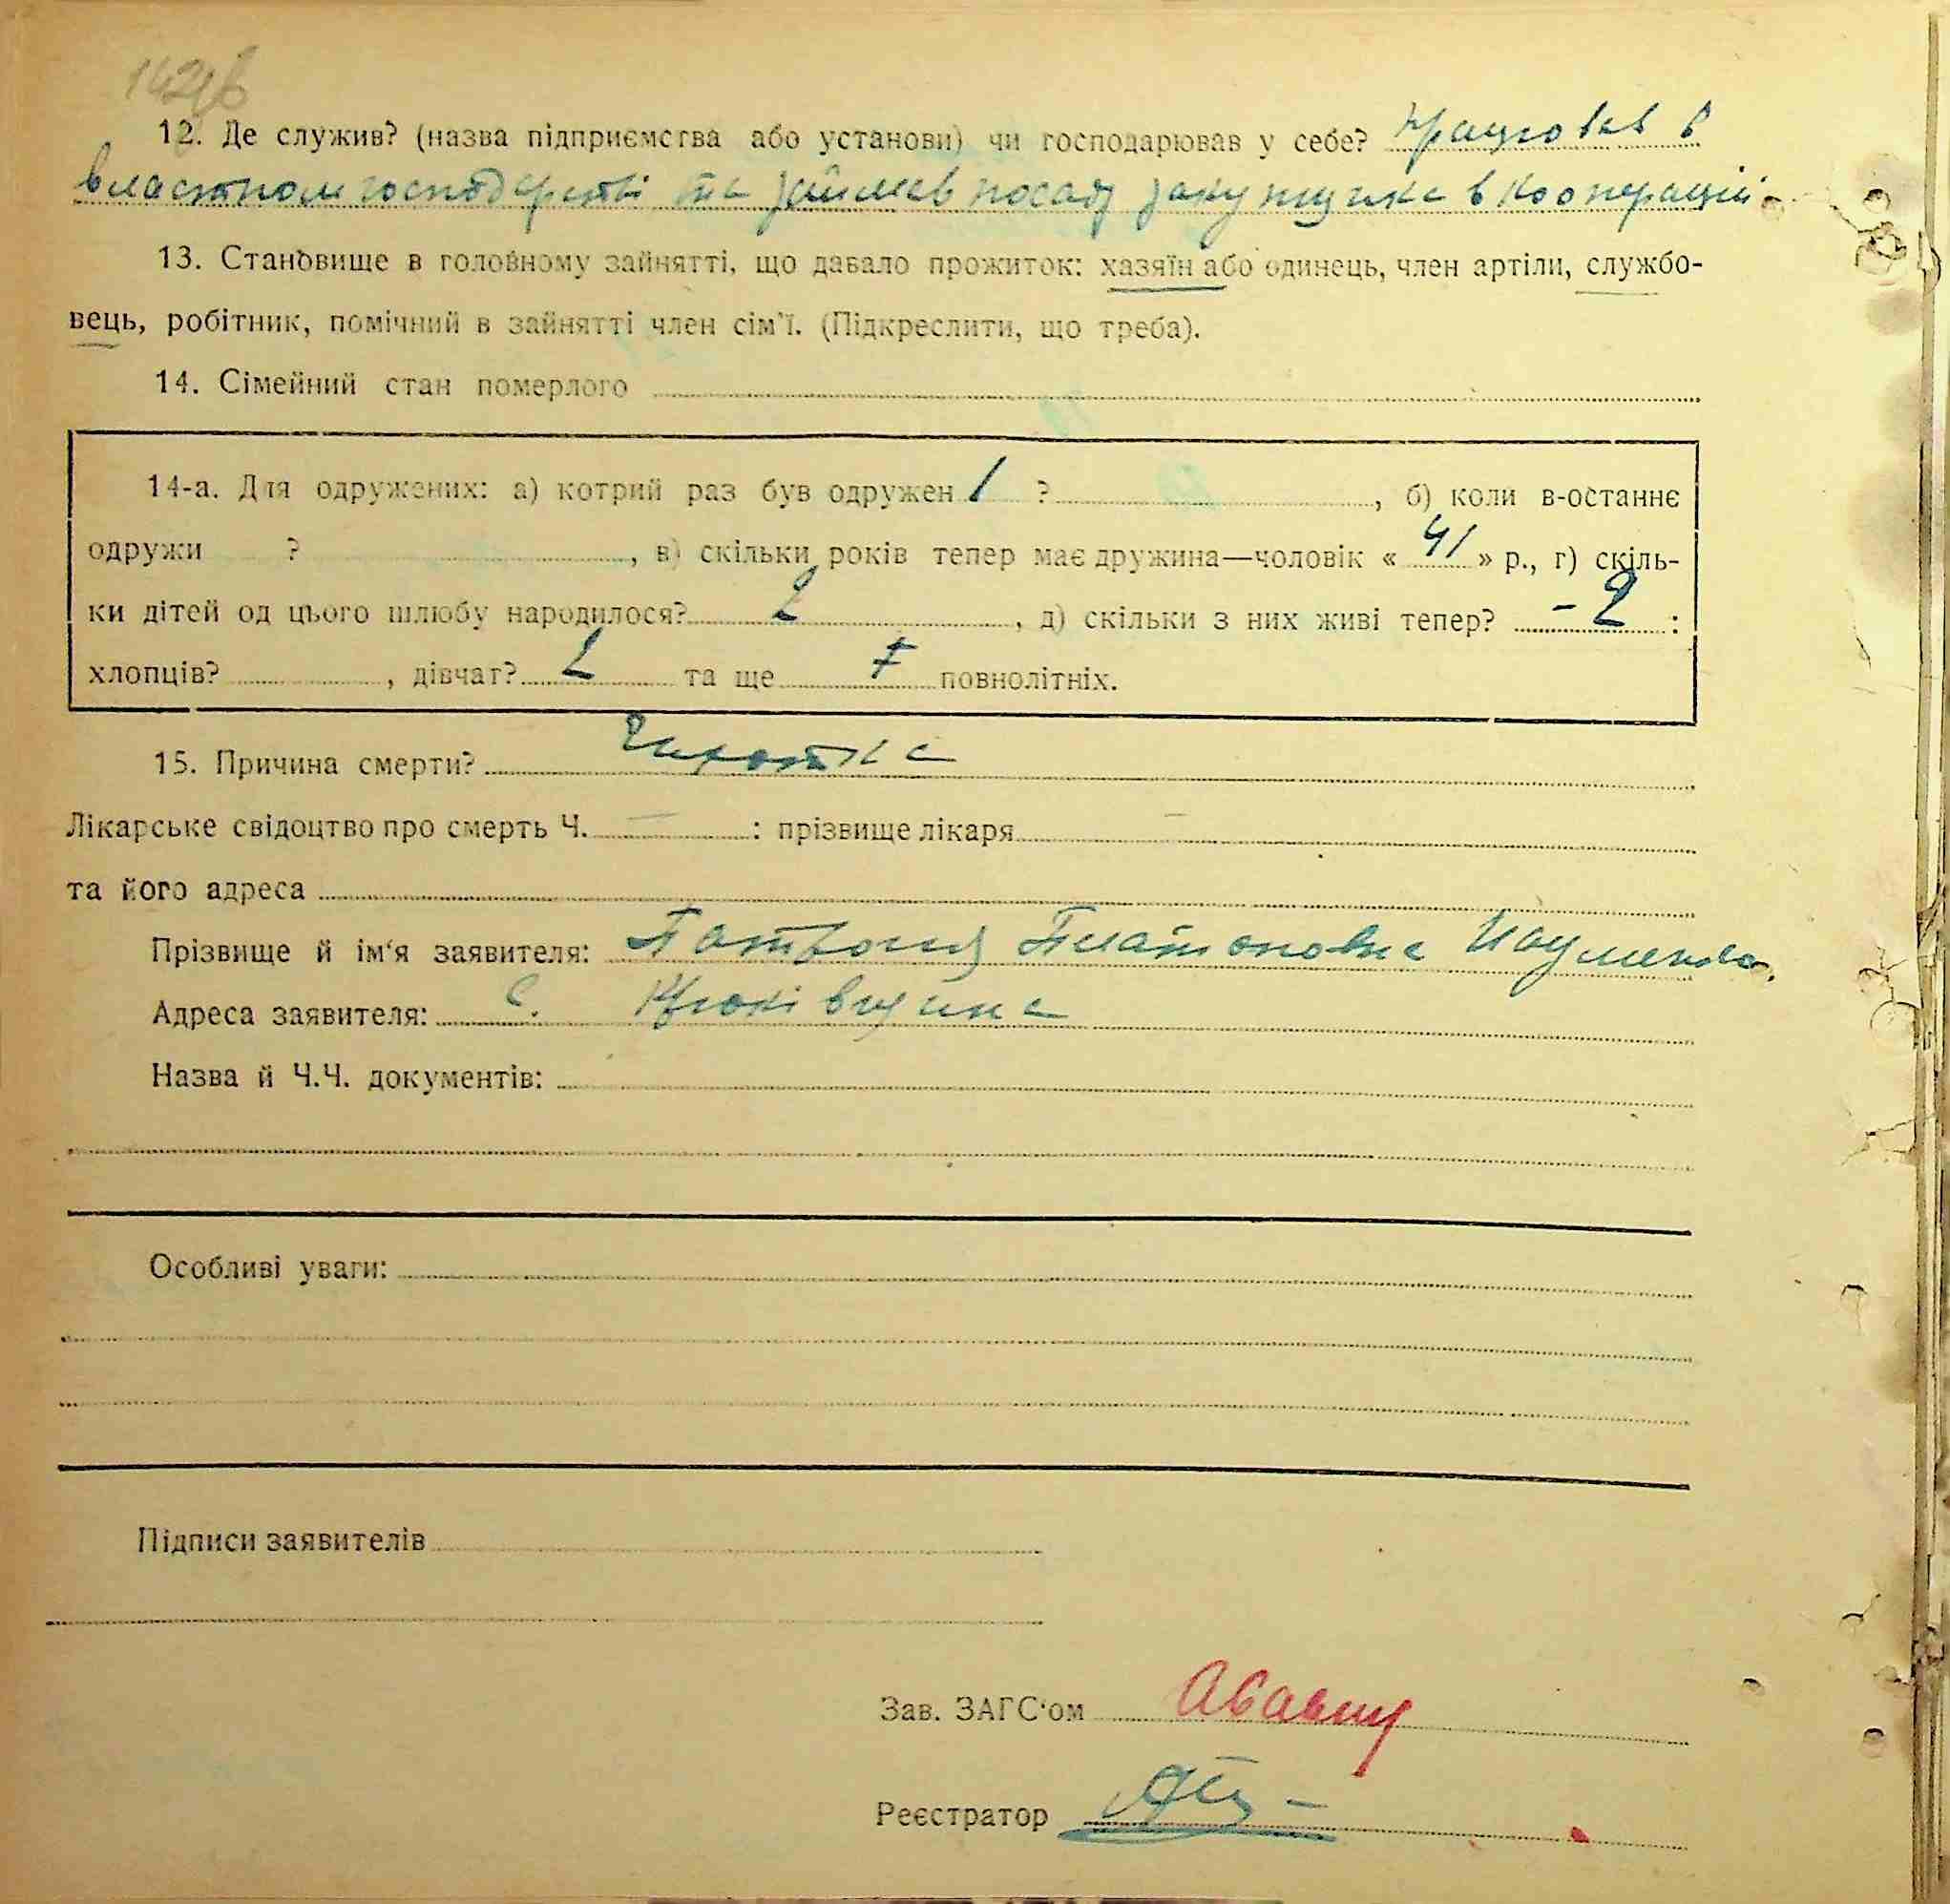 142зв
12. Де служив? (назва підприємства або установи) чи господарював у себе? працював в
властном господарстві та займав посаду закупщика в кооперації
13. Становище в головному зайнятті, що давало прожиток: хазяїн або одинець, член артіли, службо-
вець, робітник, помічний в зайнятті член сім'ї. (Підкреслити, що треба).
14. Сімейний стан померлого
14-а. Для одружених: а) котрий раз був одружен 1 ?, б) коли в-останнє
одружи ?, в) скільки років тепер має дружина—чоловік « 41 » р., г) скіль-
ки дітей од цього шлюбу народилося? 2, д) скільки з них живі тепер? – 2 :
хлопців?, дівчат? 2 та ще повнолітніх.
15. Причина смерти? чихотка
Лікарське свідоцтво про смерть Ч. — : прізвище лікаря —
та його адреса
Прізвище й ім‘я заявителя: Платоновна Науменкова.
Адреса заявителя: с. Крюківщина
Назва й Ч.Ч. документів:
Особливі уваги:
Підписи заявителів
Зав. ЗАГС‘ом
Реєстратор